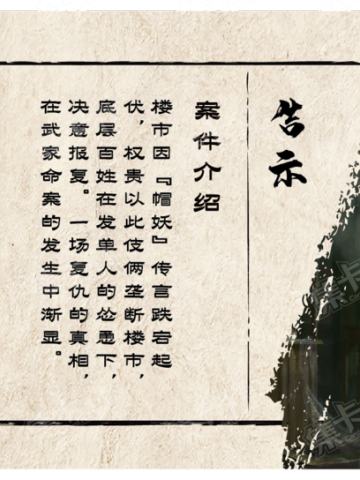 告示
案件介绍
楼市因『帽妖』传言跌宕起
伏，权贵以此伎俩垄断楼市，
底层百姓在发单人的怂恿下，
决意报复。一场复仇的真相，
在武家命案的发生中渐显。